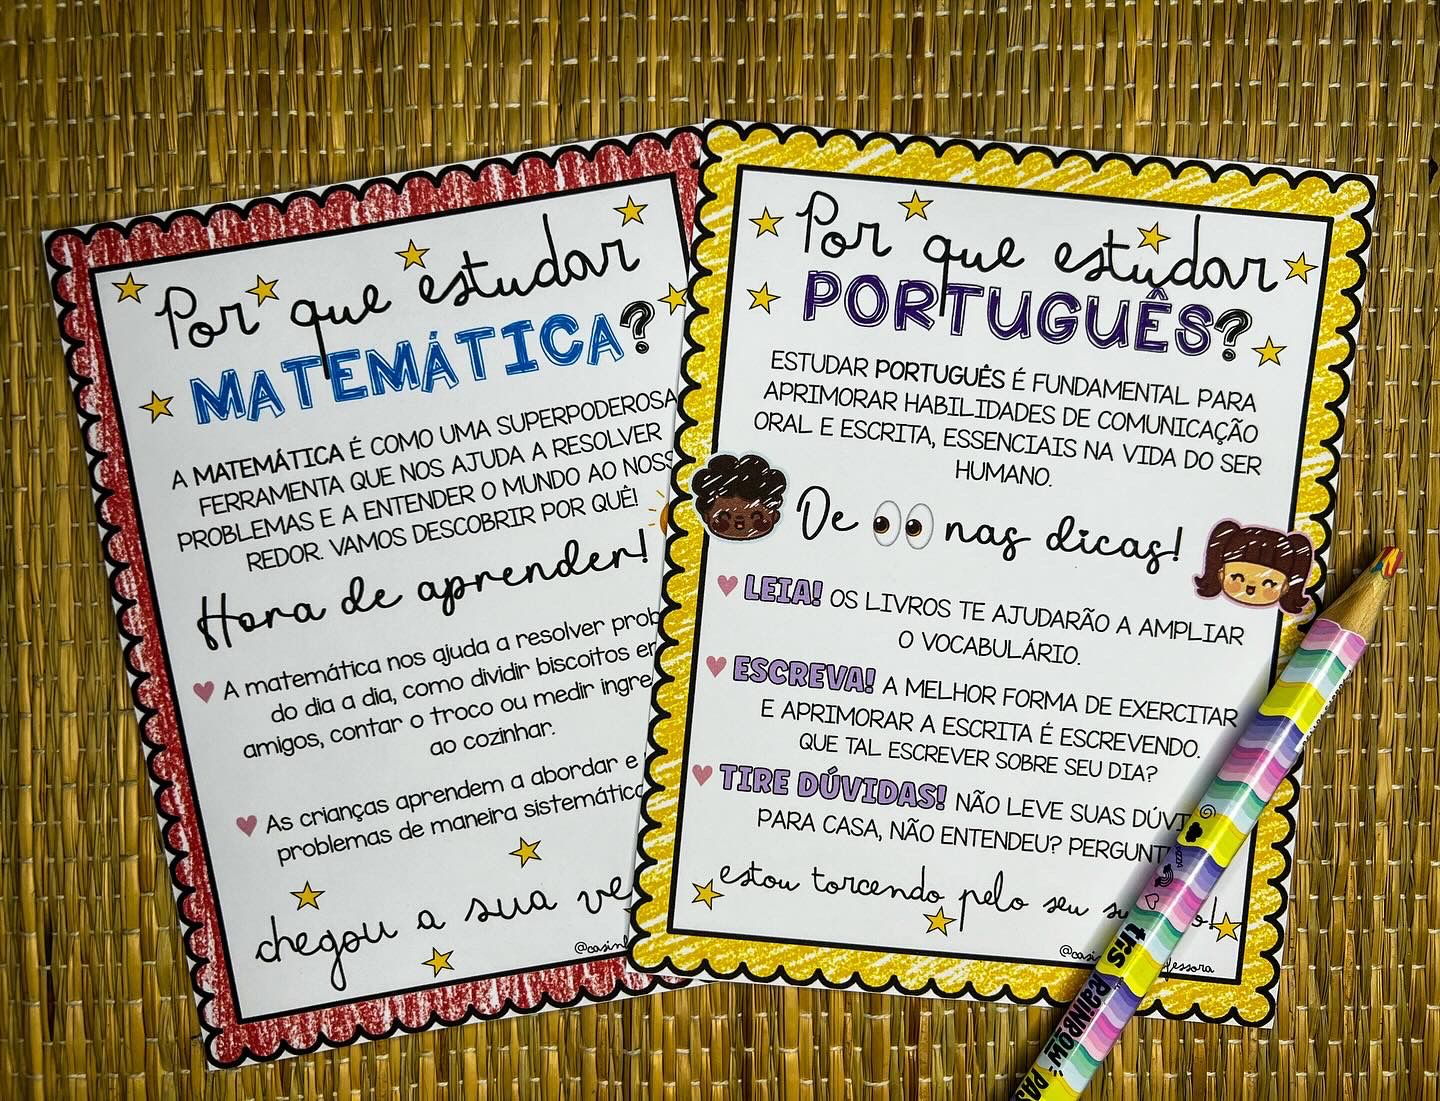 Por que estudar
MATEMÁTICA?
A MATEMÁTICA É COMO UMA SUPERPODEROSA
FERRAMENTA QUE NOS AJUDA A RESOLVER
PROBLEMAS E A ENTENDER O MUNDO AO NOSS
REDOR. VAMOS DESCOBRIR POR QUÊ!
Hora de aprender!
A matemática nos ajuda a resolver prob
do dia a dia, como dividir biscoitos en
amigos, contar o troco ou medir ingre
ao cozinhar.
As crianças aprendem a abordar e
problemas de maneira sistemátic
chegou a sua ve
@casin
Por que estudar
PORTUGUÊS?
ESTUDAR PORTUGUÊS É FUNDAMENTAL PARA
APRIMORAR HABILIDADES DE COMUNICAÇÃO
ORAL E ESCRITA, ESSENCIAIS NA VIDA DO SER
HUMANO.
De 👀 nas dicas!
LEIA! OS LIVROS TE AJUDARÃO A AMPLIAR
O VOCABULÁRIO.
ESCREVA! A MELHOR FORMA DE EXERCITAR
E APRIMORAR A ESCRITA É ESCREVENDO.
QUE TAL ESCREVER SOBRE SEU DIA?
TIRE DÚVIDAS! NÃO LEVE SUAS DÚVI
PARA CASA, NÃO ENTENDEU? PERGUNT
estou torcendo pelo seu su o!
@casi fessora
tris RAINBOW PAS